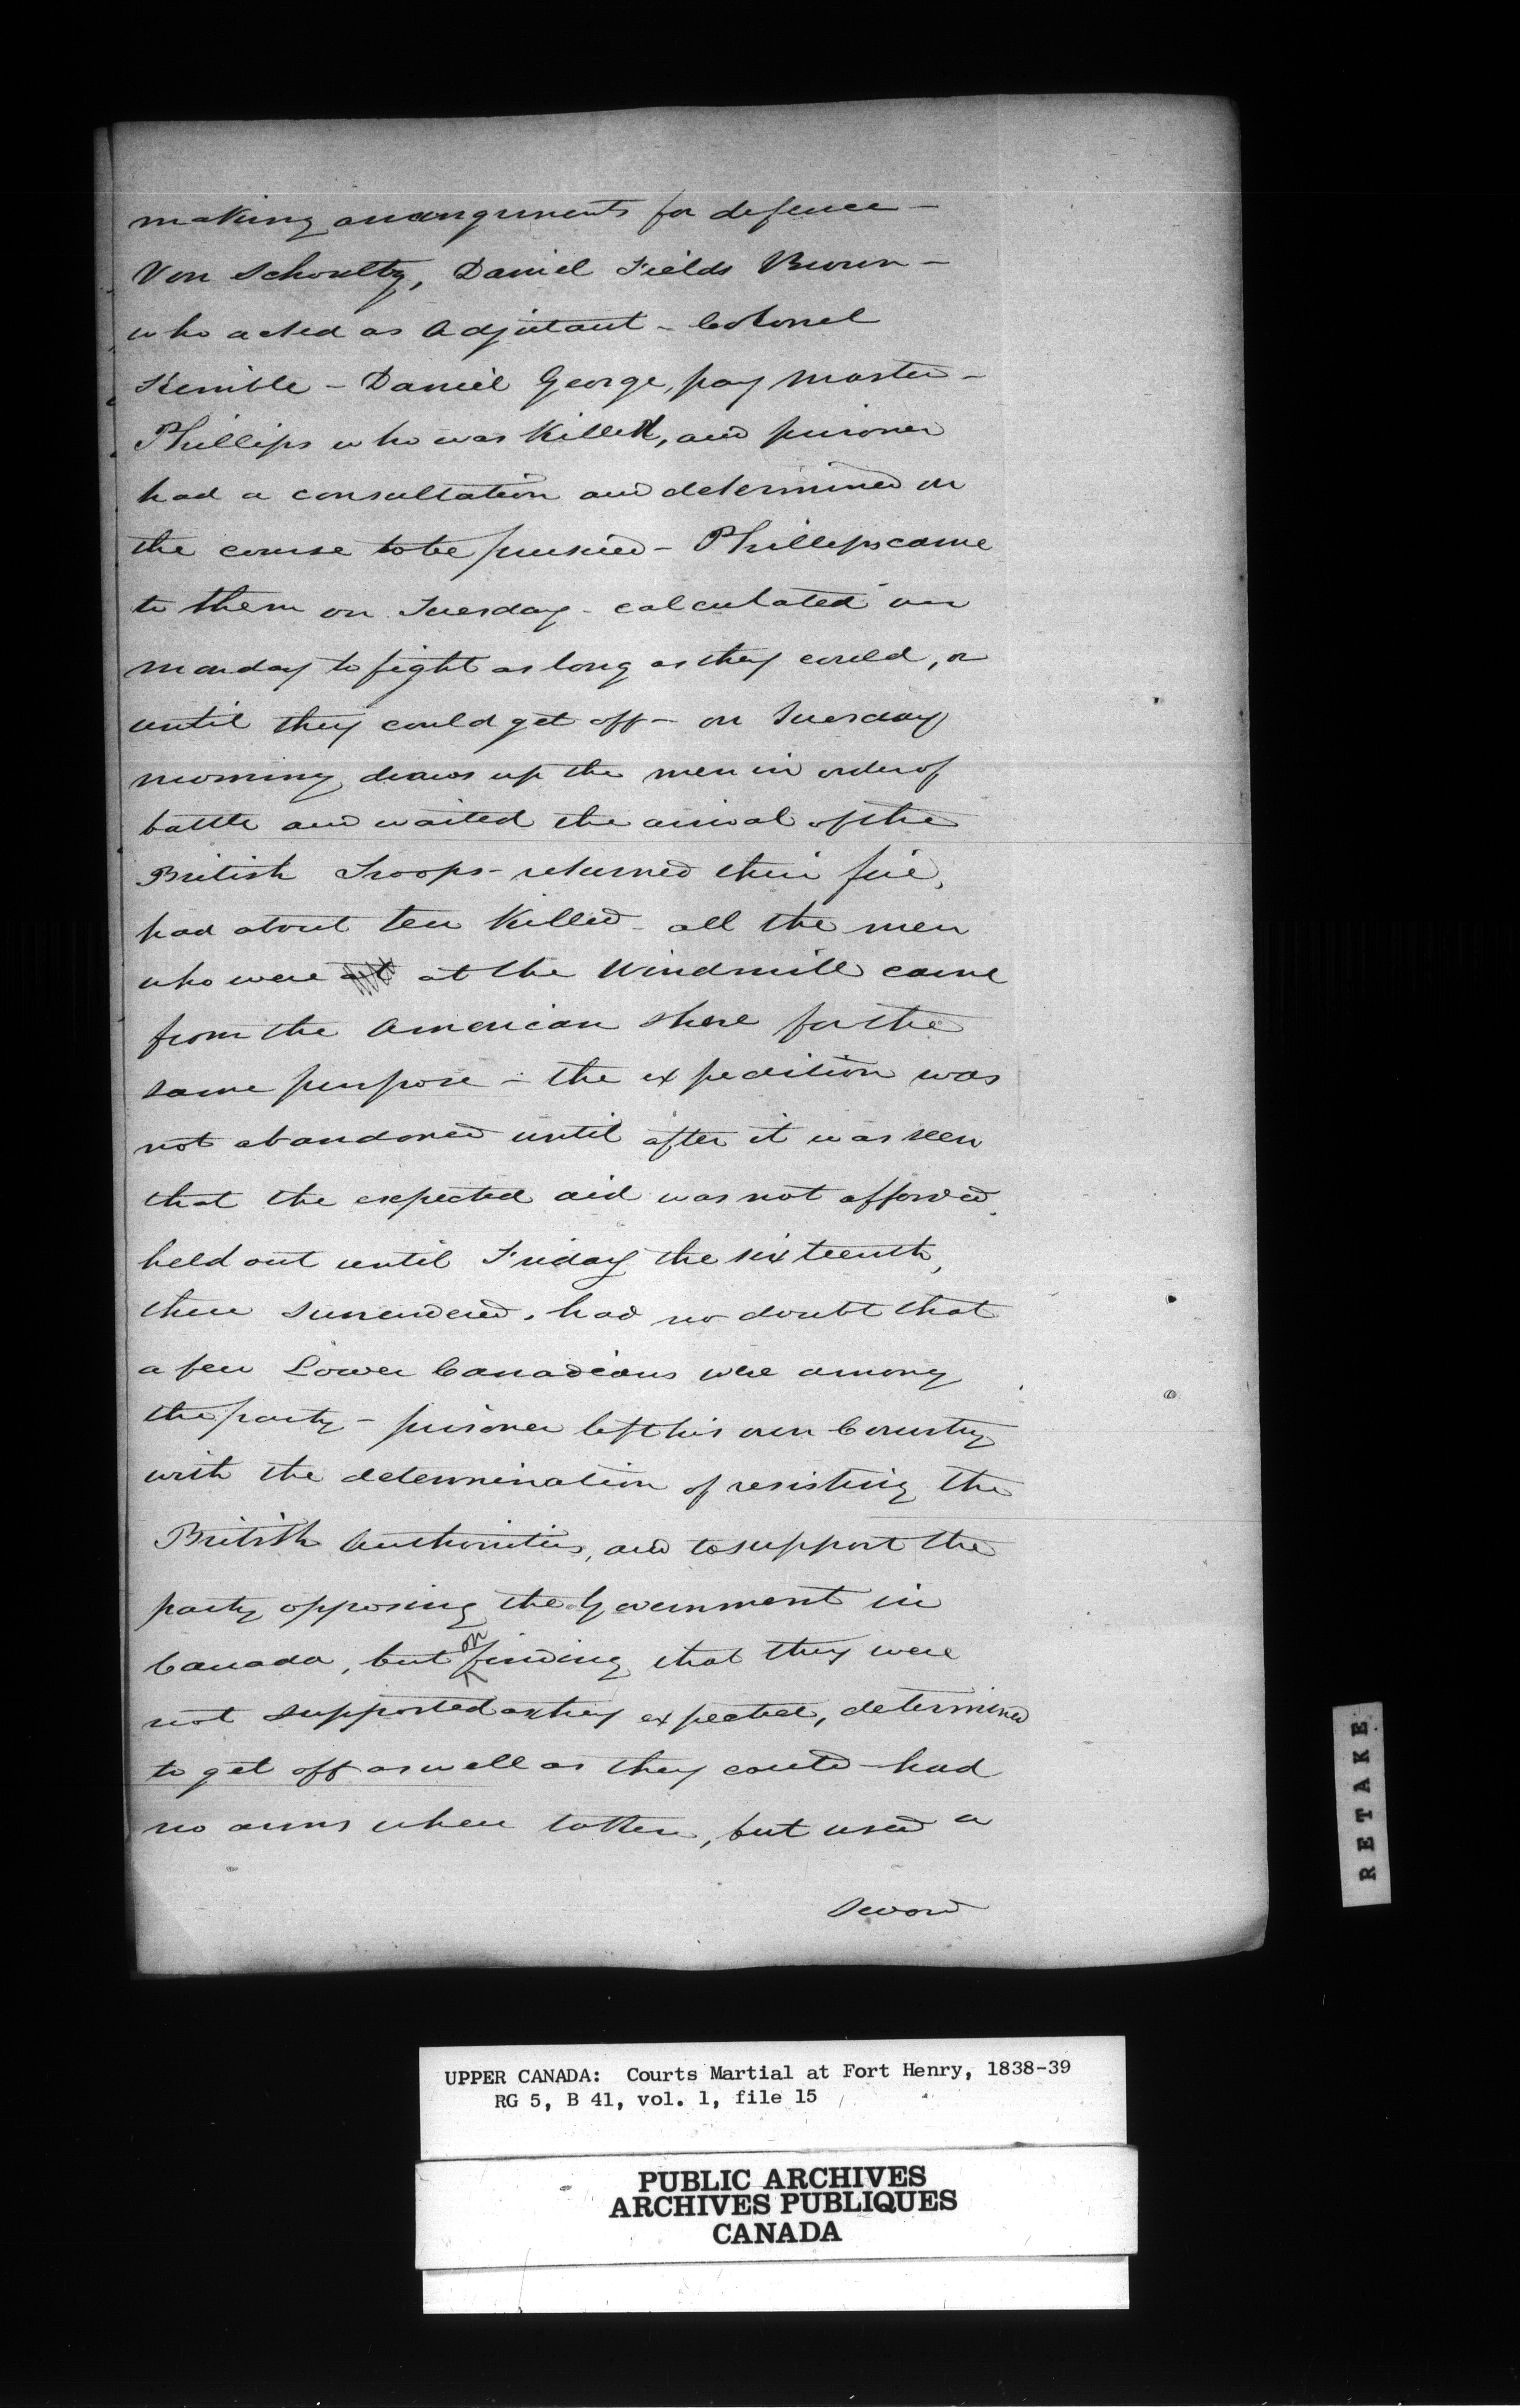 making arrangements for defence -
Von Schoultz, Daniel Fields Brown -
who acted as Adjutant - Colonel
Kemble - Daniel George, pay master -
Phillips who was Killed, and prisoner
had a consultation and determined on
the course to be pursued - Phillips came
to them on Tuesday - calculated on
monday to fight as long as they could, or
until they could get off - on Tuesday
morning draws up the men in order of
battle and waited the arrival of the
British Troops - returned their fire,
had about ten Killed - all the men
who were at the Windmill came
from the American shore for the
same purpose - the expedition was
not abandoned until after it was seen
that the expected aid was not afforded.
held out until Friday the sixteenth,
then surrendered. had no doubt that
a few Lower Canadians were among
the party - prisoner left his own Country
with the determination of resisting the
British Authorities, and to support the
party opposing the Government in
Canada, but on finding that they were
not supported as they expected, determined
to get off as well as they could - had
no arms when taken, but used a
Sword
RETAKE
UPPER CANADA: Courts Martial at Fort Henry, 1838-39
RG 5, B 41, vol. 1, file 15
PUBLIC ARCHIVES
ARCHIVES PUBLIQUES
CANADA